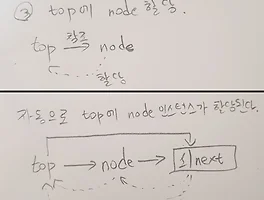 ③ top에 node 할당.
top 참조 node
할당
자동으로 top에 node 인스턴스가 할당된다.
top → node → 1 next